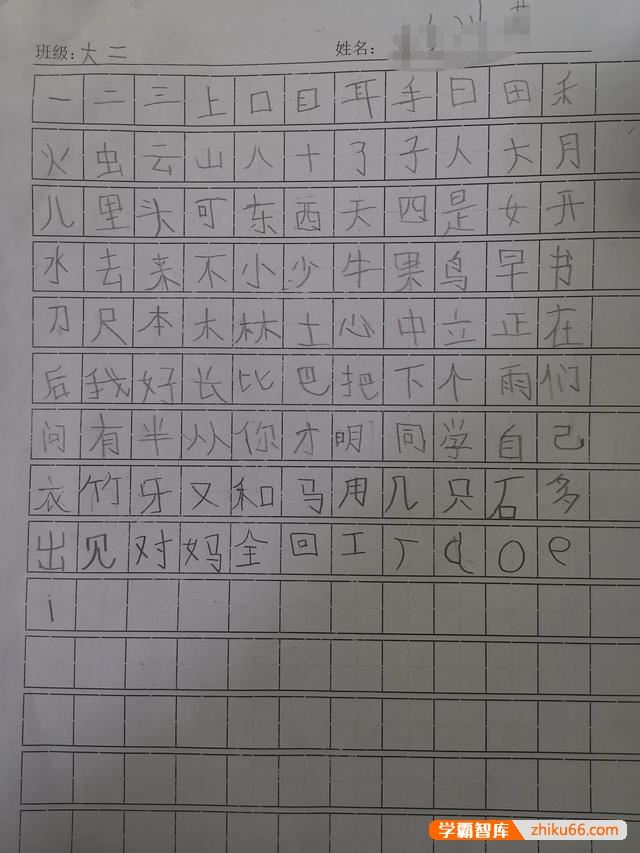 班级: 大二 姓名:
一二三上口目耳手日田禾
火虫云山八十了子人大月
儿里头可东西天四是女开
水去来不小少牛果鸟早书
刀尺本木林土心中立正在
后我好长比巴把下个雨们
问有半从你才明同学自己
衣竹牙又和马用几只石多
出见对妈全回工厂 a o e
i
学霸智库 zhiku66.com